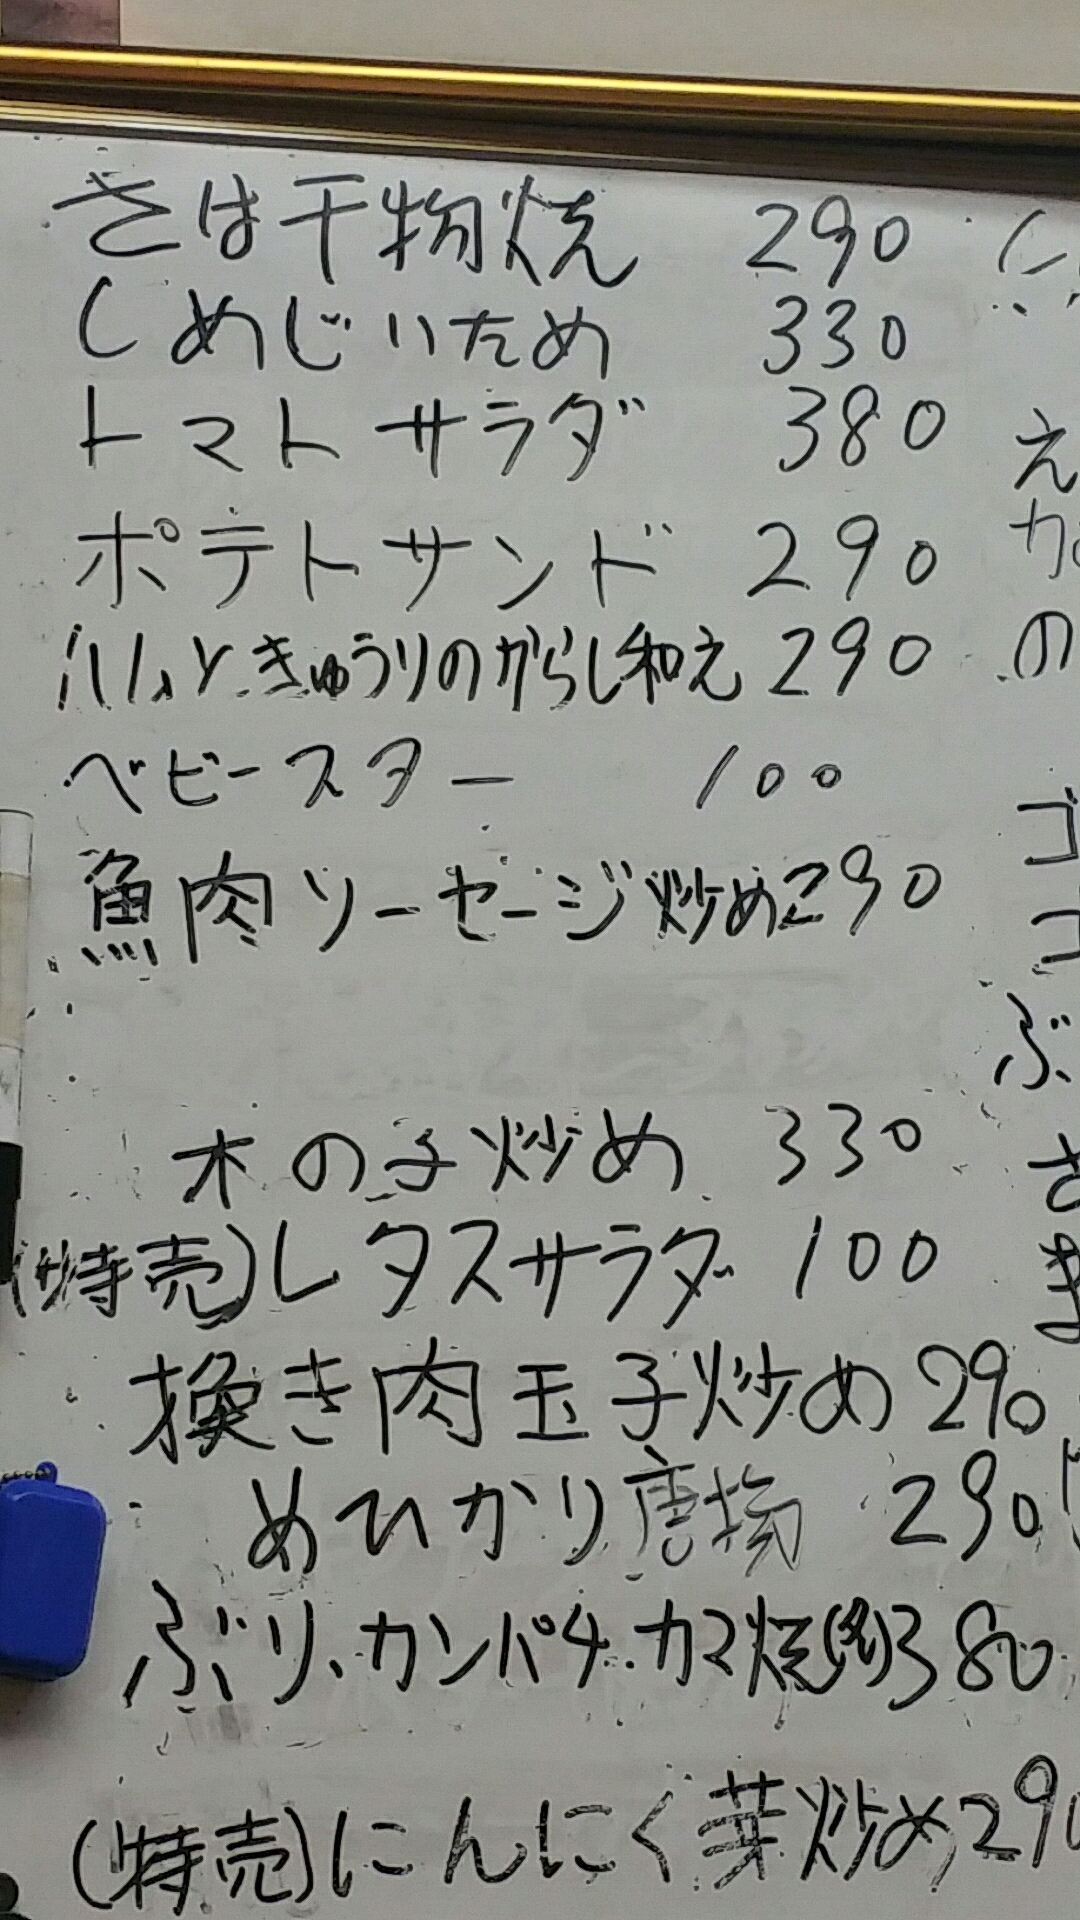 さは干物焼 290
しめじいため 330
トマトサラダ 380
ポテトサンド 290
ハムときゅうりのからし和え 290
ベビースター 100
魚肉ソーセージ炒め290
木の子炒め 330
(特売)レタスサラダ 100
挽き肉玉子炒め290
めひかり唐揚 290
ぶり、カンパチ、カマ焼 380
(特売)にんにく芽炒め290
え
の
ゴ
コ
ぶ
さ
き